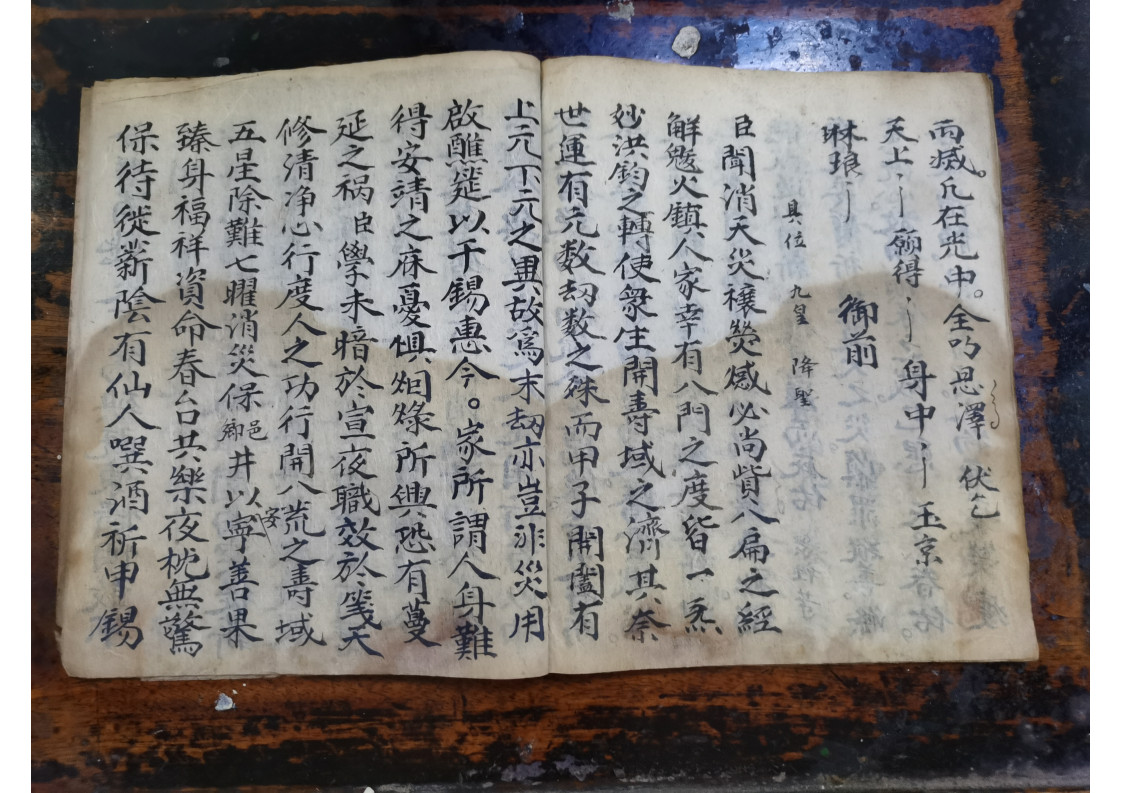 而滅。凢在光中。全叨恩澤 伏乞
天上 願得 身中 玉京
琳琅 御前
具位 九皇 降聖
臣聞消天災禳熒惑必尚貲八扁之經
解魃火鎮人家幸有八門之度皆一炁
妙洪鈞之轉使衆生開壽域之濟其奈
世運有元数刼数之殊而甲子開闔有
上元下元之異故爲末刼亦豈非災用
啟醮筵以干錫惠今。家所謂人身難
得安靖之庥憂惧烟燧所興恐有蔓
延之祸臣學未暗於宣夜職效於箋天
修清净心行度人之功行開八荒之壽域
五星除難七曜消災保鄉邑井以寧安善果
臻身福祥資命春台共樂夜枕無驚
保待徙薪陰有仙人噀酒祈申錫